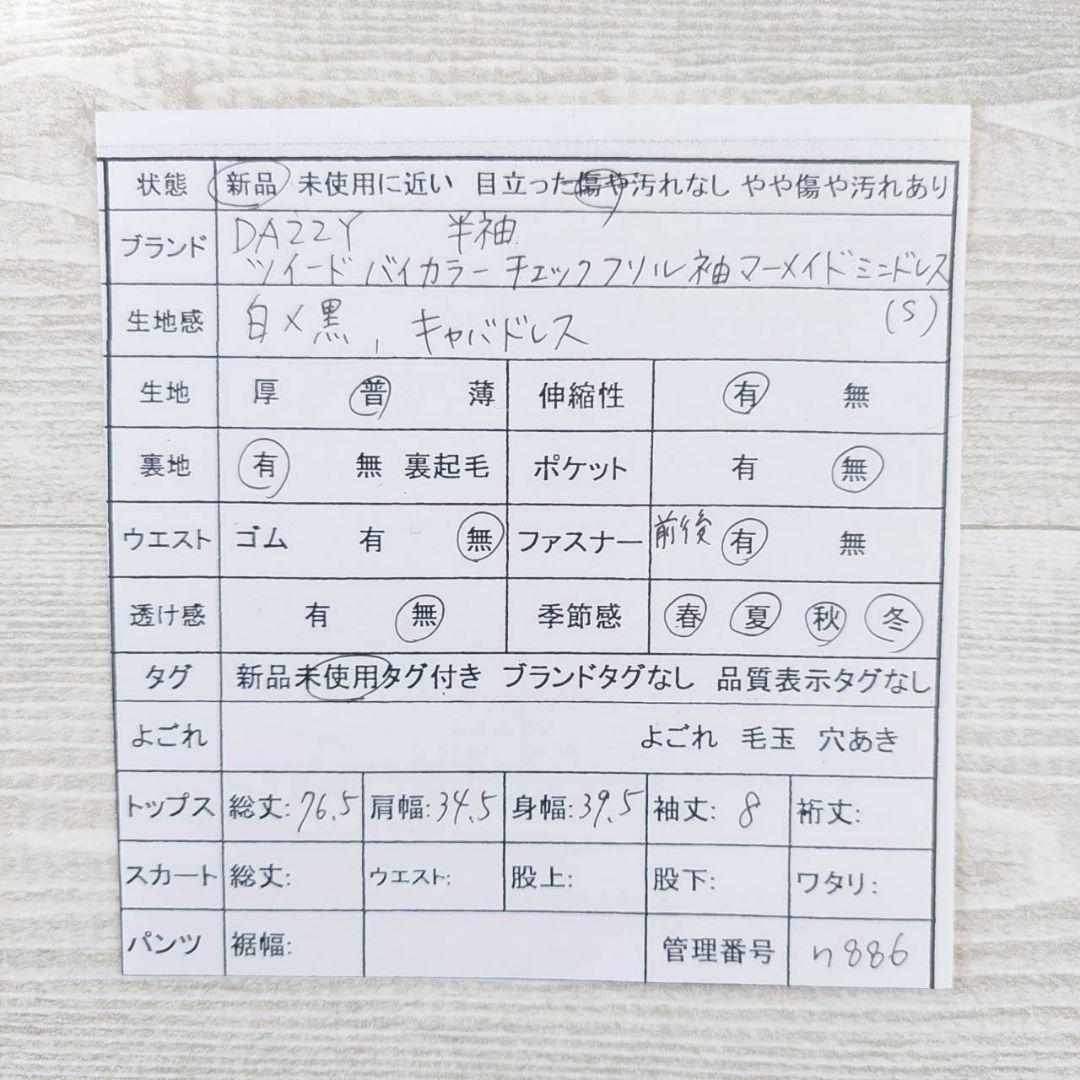 状態 新品 未使用に近い 目立った傷や汚れなし やや傷や汚れあり
ブランド DAZZY 半袖
ツイードバイカラーチェックフリル袖マーメイドミニドレス
生地感 白×黒, キャバドレス (S)
生地 厚 普 薄 伸縮性 有 無
裏地 有 無 裏起毛 ポケット 有 無
ウエスト ゴム 有 無 ファスナー 前後 有 無
透け感 有 無 季節感 春 夏 秋 冬
タグ 新品未使用タグ付き ブランドタグなし 品質表示タグなし
よごれ よごれ 毛玉 穴あき
トップス 総丈:76.5 肩幅:34.5 身幅:39.5 袖丈: 8 裄丈:
スカート 総丈: ウエスト: 股上: 股下: ワタリ:
パンツ 裾幅: 管理番号 n886